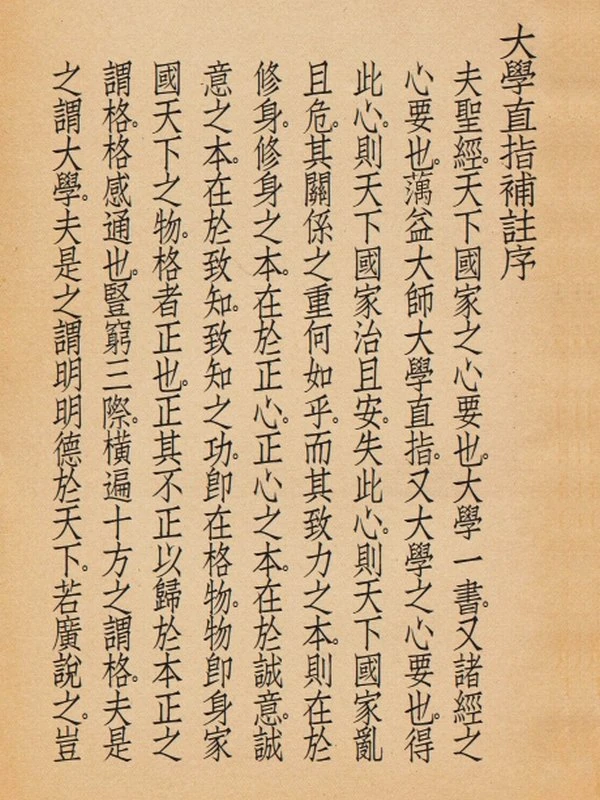 大學直指補註序
夫聖經。天下國家之心要也。大學一書。又諸經之
心要也。蕅益大師大學直指。又大學之心要也。得
此心。則天下國家治且安。失此心。則天下國家亂
且危。其關係之重何如乎。而其致力之本。則在於
修身。修身之本。在於正心。正心之本。在於誠意。誠
意之本。在於致知。致知之功。即在格物。物即身家
國天下之物。格者正也。正其不正以歸於本正之
謂格。格感通也。豎窮三際。橫遍十方之謂格。夫是
之謂大學。夫是之謂明明德於天下。若廣說之。豈